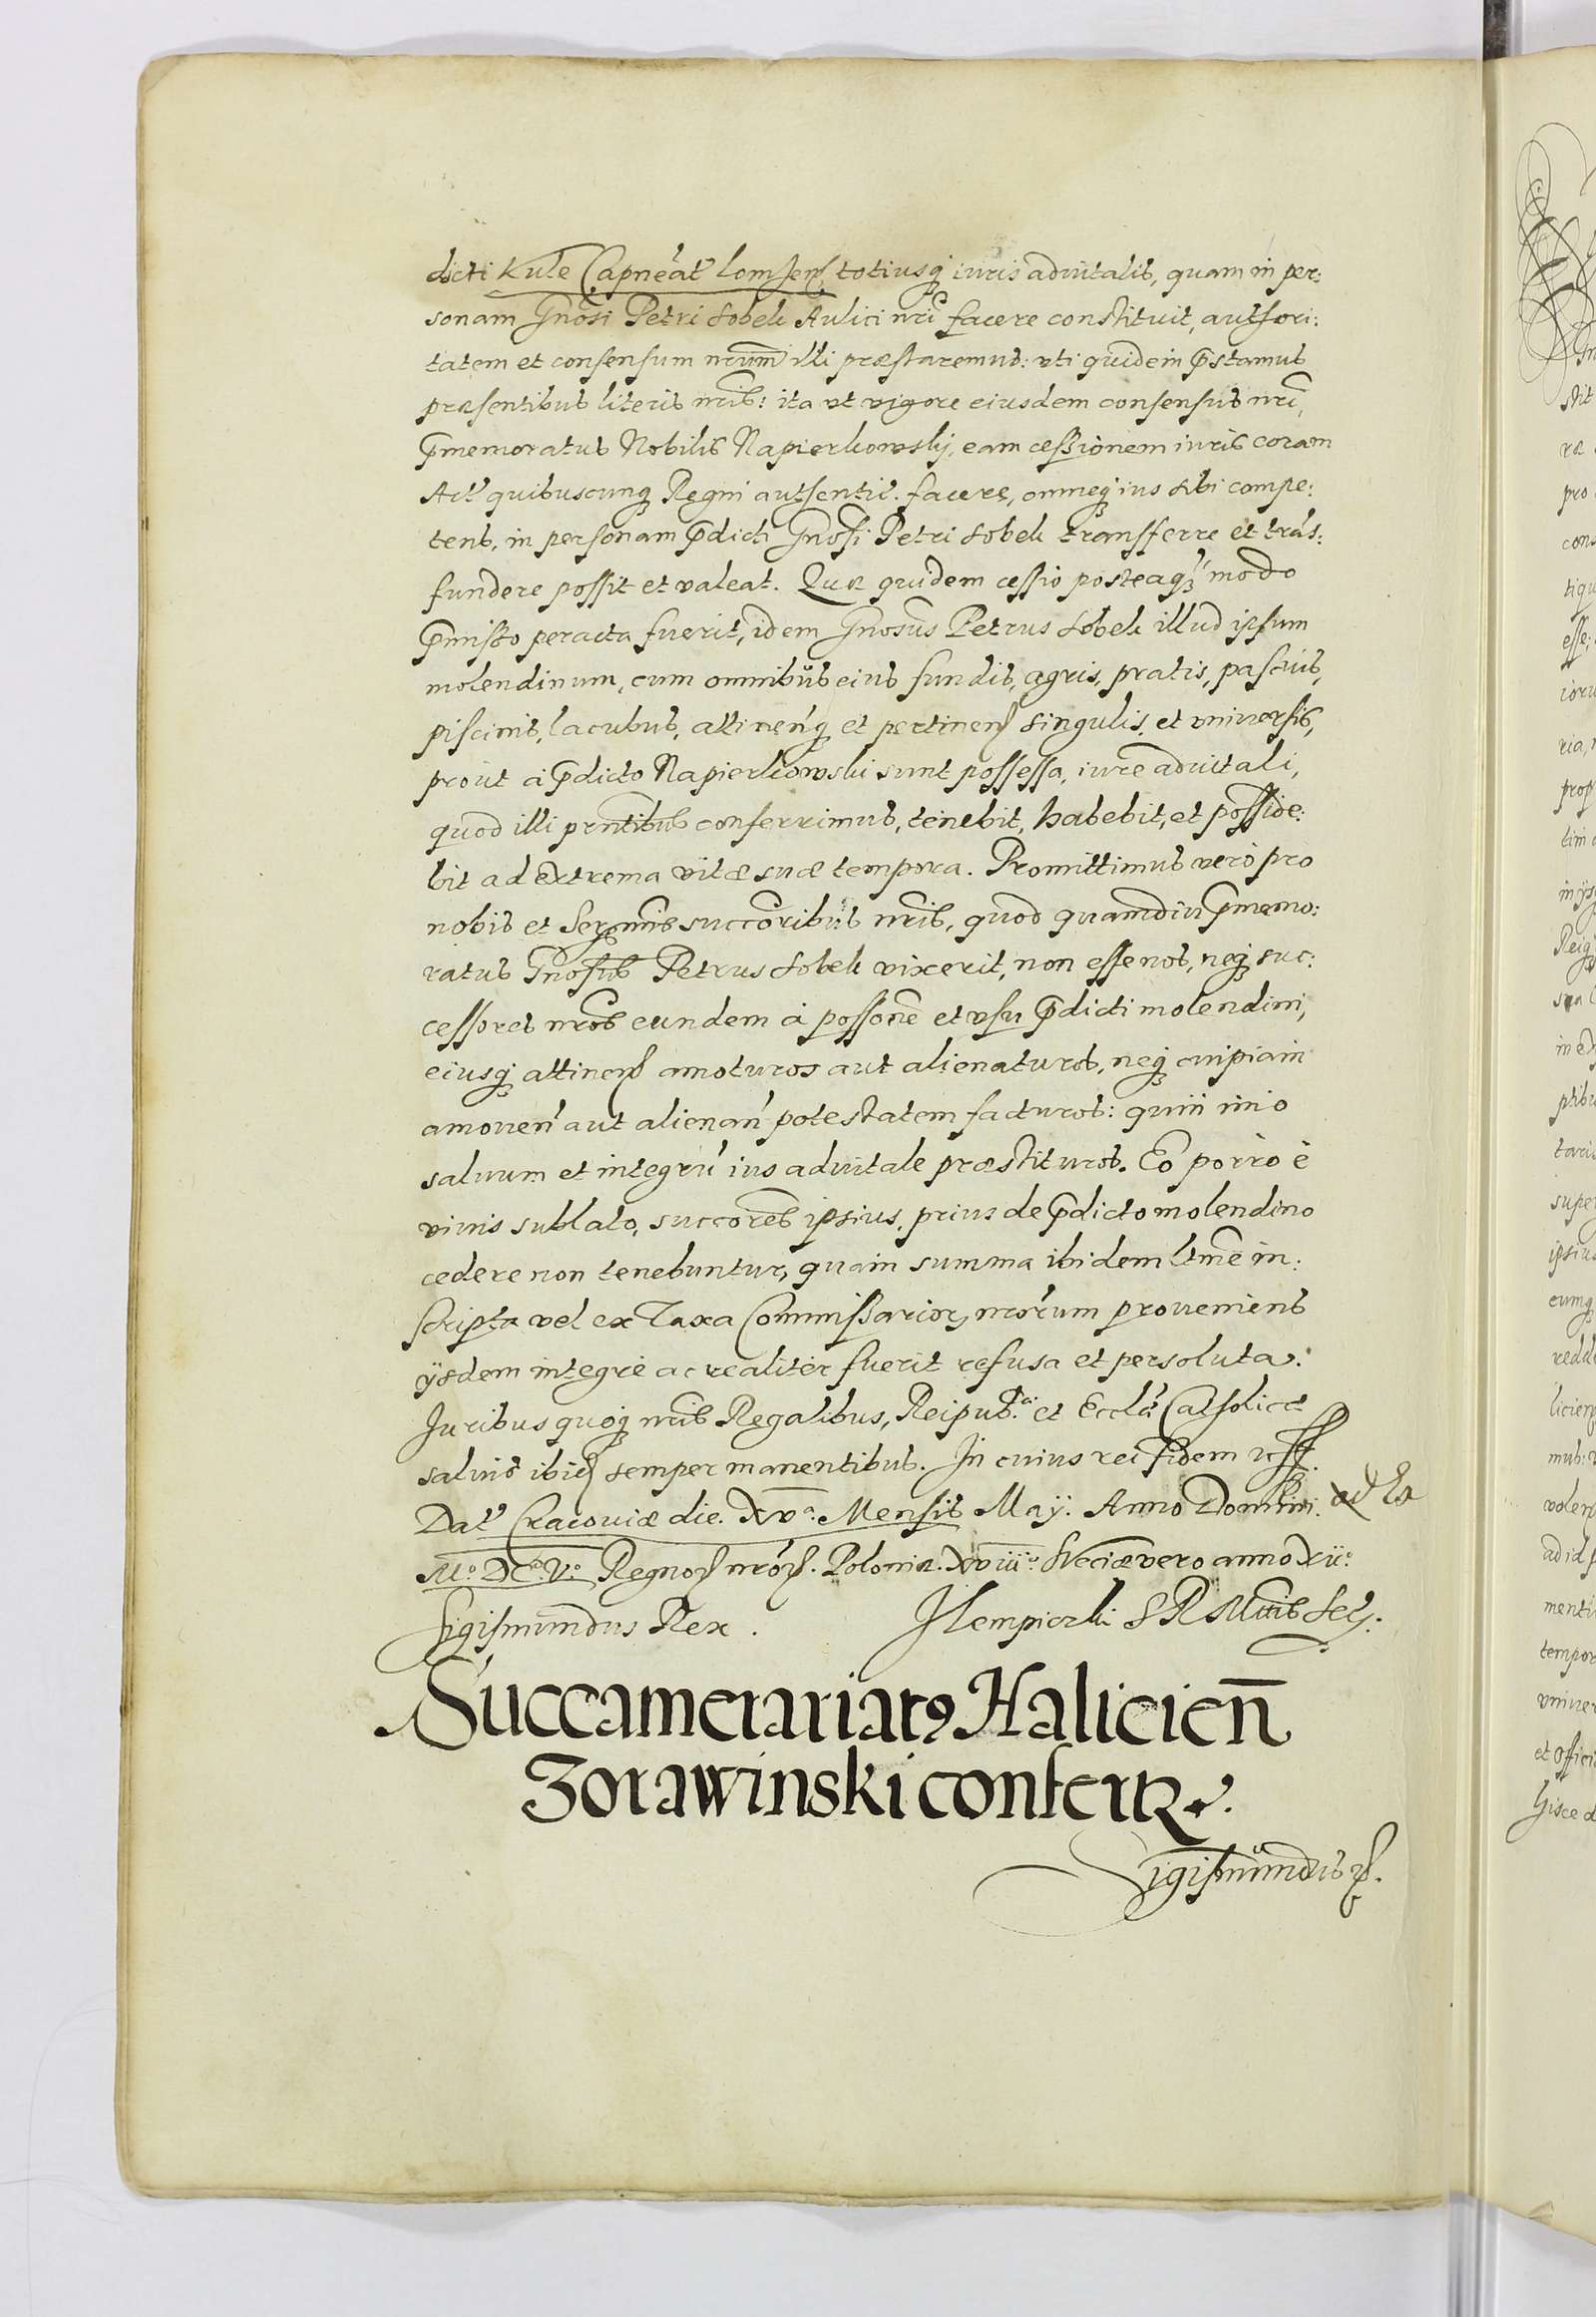 dicti Kule Capneat͛ Lomzen̄ totiusq́ iuris aduitalis, quam in per:
sonam Gnōsi Petri Sobek Aulici nr̄i facere constituit, authori:
tatem et consensum nr̄um illi præstaremus: vti quidem p̄stamus
præsentibus literis nr̄is: ita vt vigore eiusdem consensus nr̄i,
p̄memoratus Nobilis Napierkowskj, eam cessionem iuris coram
Act͛ quibuscunq́ Regni authentic. facere, omneq́ ius sibi compe:
tens, in personam p̄dicti Gnōsi Petri Sobek transferre et trās:
fundere possit et valeat. Quæ quidem cessio posteaq́ modo
p̄misso peracta fuerit, idem Gnōsus Petrus Sobek illud ipsum
molendinum, cum omnibus eius fundis, agris, pratis, pascuis,
piscinis, lacubus, attinen̄q́ et pertinen̄ singulis et vniuersis,
prout à p̄dicto Napierkowski sunt possessa, iure aduitali,
quod illi pr̄ntibus conferrimus, tenebit, habebit, et posside:
bit ad extrema vitæ suæ tempora. Promittimus vero pro
nobis et Ser̄mis succōribus nr̄is, quod quamdiu p̄memo:
ratus Gnōsus Petrus Sobek vixerit, non esse nos, neq́ suc:
cessores nr̄os eundem à possōne et vsu p̄dicti molendini,
eiusq́ attinen̄ amoturos aut alienaturos, neq́ cuipiam
amouen̄ aut alienan̄ potestatem facturos: quin imo
saluum et integrū ius aduitale præstituros. Eo porrò è
viuis sublato, succōres ipsius, prius de p̄dicto molendino
cedere non tenebuntur, quam summa ibidem ltm̄e in:
scripta vel ex Taxa Commissarior, nr̄orum proueniens
ijsdem integrè ac realiter fuerit refusa et persoluta.
Iuribus quoq́ nr̄is Regalibus, Reipub.ᶜᵃ et Eccl̄æ Catholicæ
saluis ibid̄ semper manentibus. In cuius rei fidem
Dat͛ Cracouiæ die. XVᵃ. Mensis Maÿ. Anno Domini.
M°. DC°. V°. Regnoꝝ nr̄oꝝ. Poloniæ. XVIII°. Sveciæ vero anno XII°.
Sigismundus Rex. J Lempicki S R Mttis Sec.
Succamerariatꝰ Halicien̄
Zorawinski confertꝛ.
Sigismundus R.